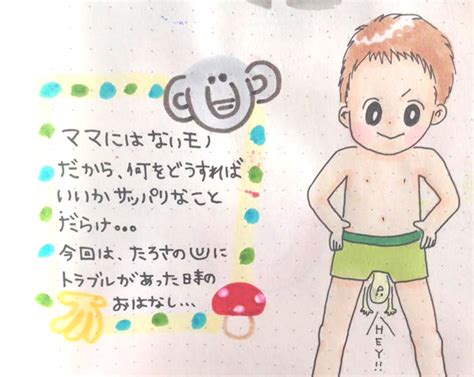 ママにはないモノ
だから、何をどうすれば
いいかサッパリなこと
だらけ...
今回は、たろさのUに
トラブルがあった日時の
おはなし...
HEY!!